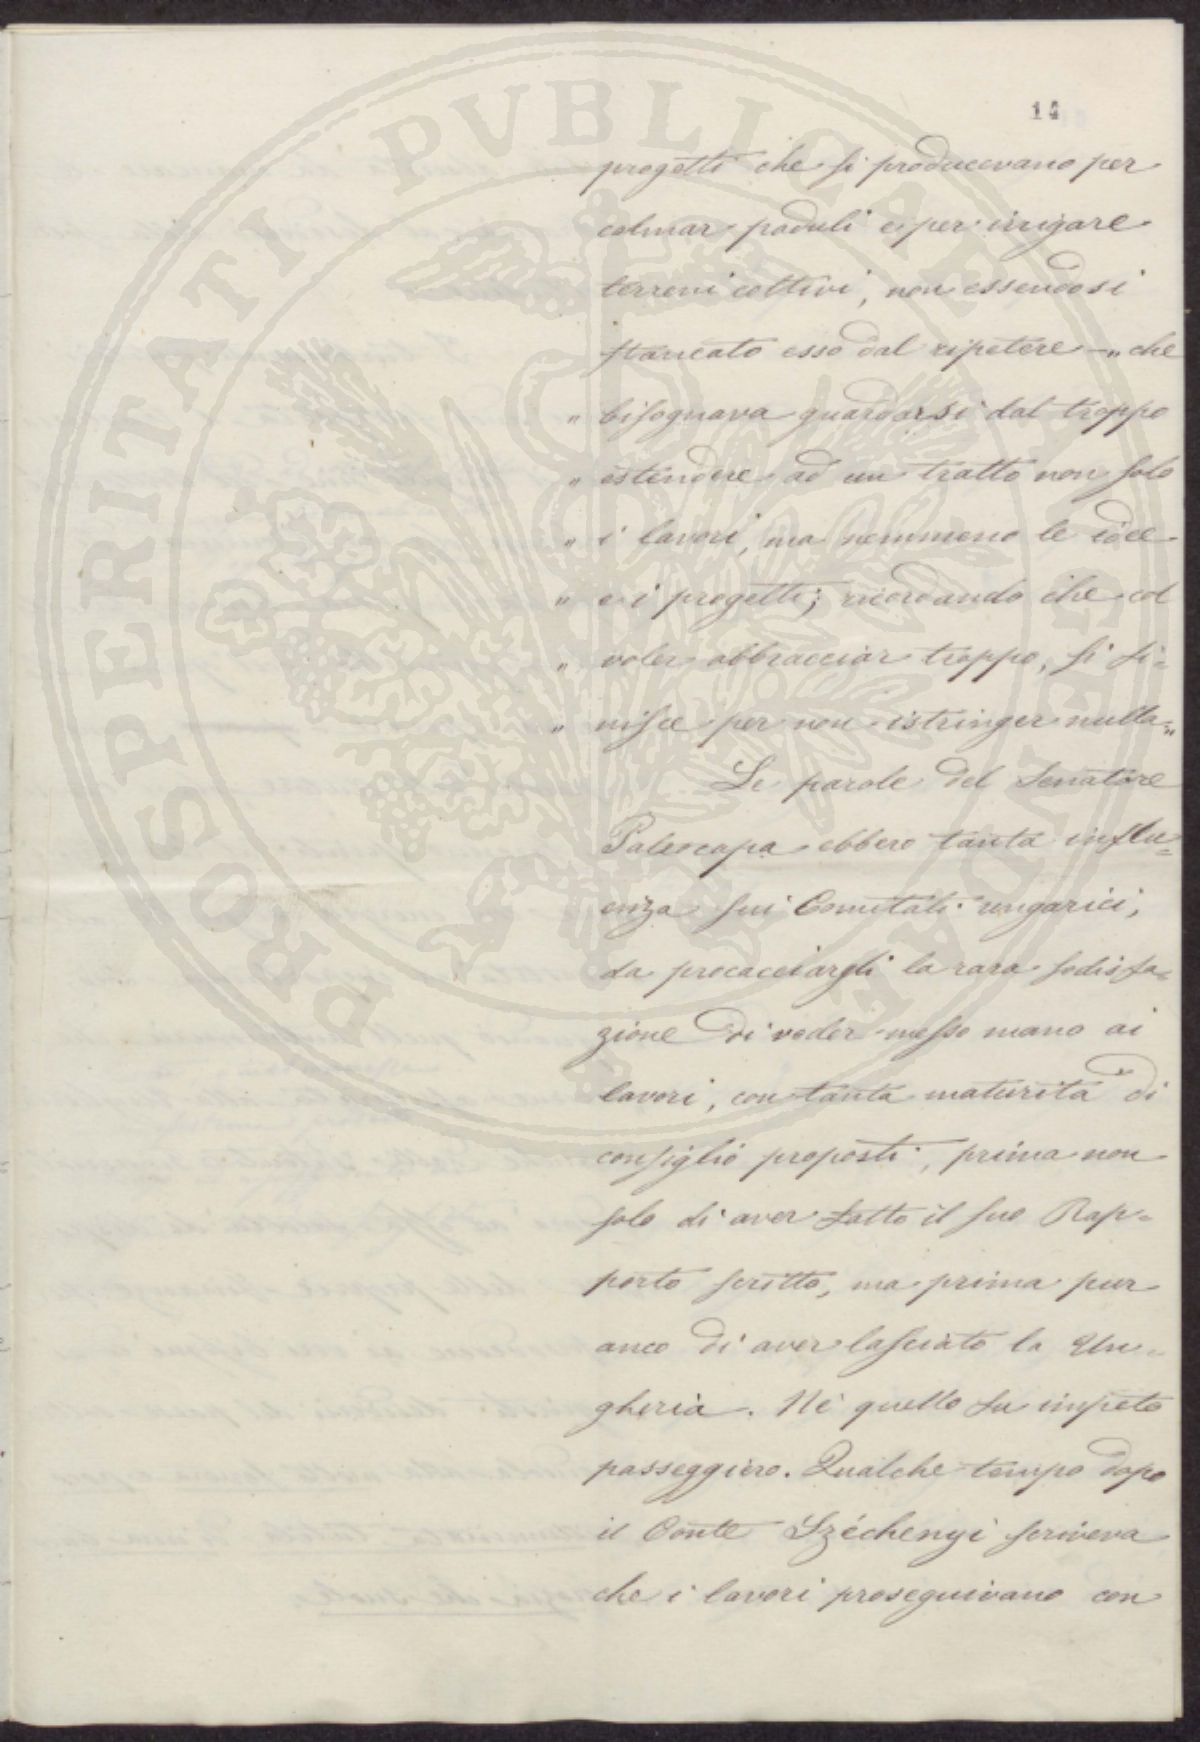 14
progetti che si producevano per
colmar paduli e per irrigare
terreni coltivi, non essendosi
stancato esso dal ripetere — „ che
„ bisognava guardarsi dal troppo
„ estendere ad un tratto non solo
„ i lavori, ma nemmeno le idee
„ e i progetti; ricordando che col
„ voler abbracciar troppo, si fi=
„ nisce per non istringer nulla."
Le parole del Senatore
Paleocapa ebbero tanta influ=
enza sui Comitati ungarici,
da procacciargli la rara sodisfa=
zione di veder messo mano ai
lavori, con tanta maturità di
consiglio proposti, prima non
solo di aver fatto il suo Rap=
porto scritto, ma prima pur
anco di aver lasciato la Un=
gheria. Nè quello fu impeto
passeggiero. Qualche tempo dopo
il Conte Széchenyi scriveva
che i lavori proseguivano con
PROSPERITATI PVBLICAE AVGENDAE